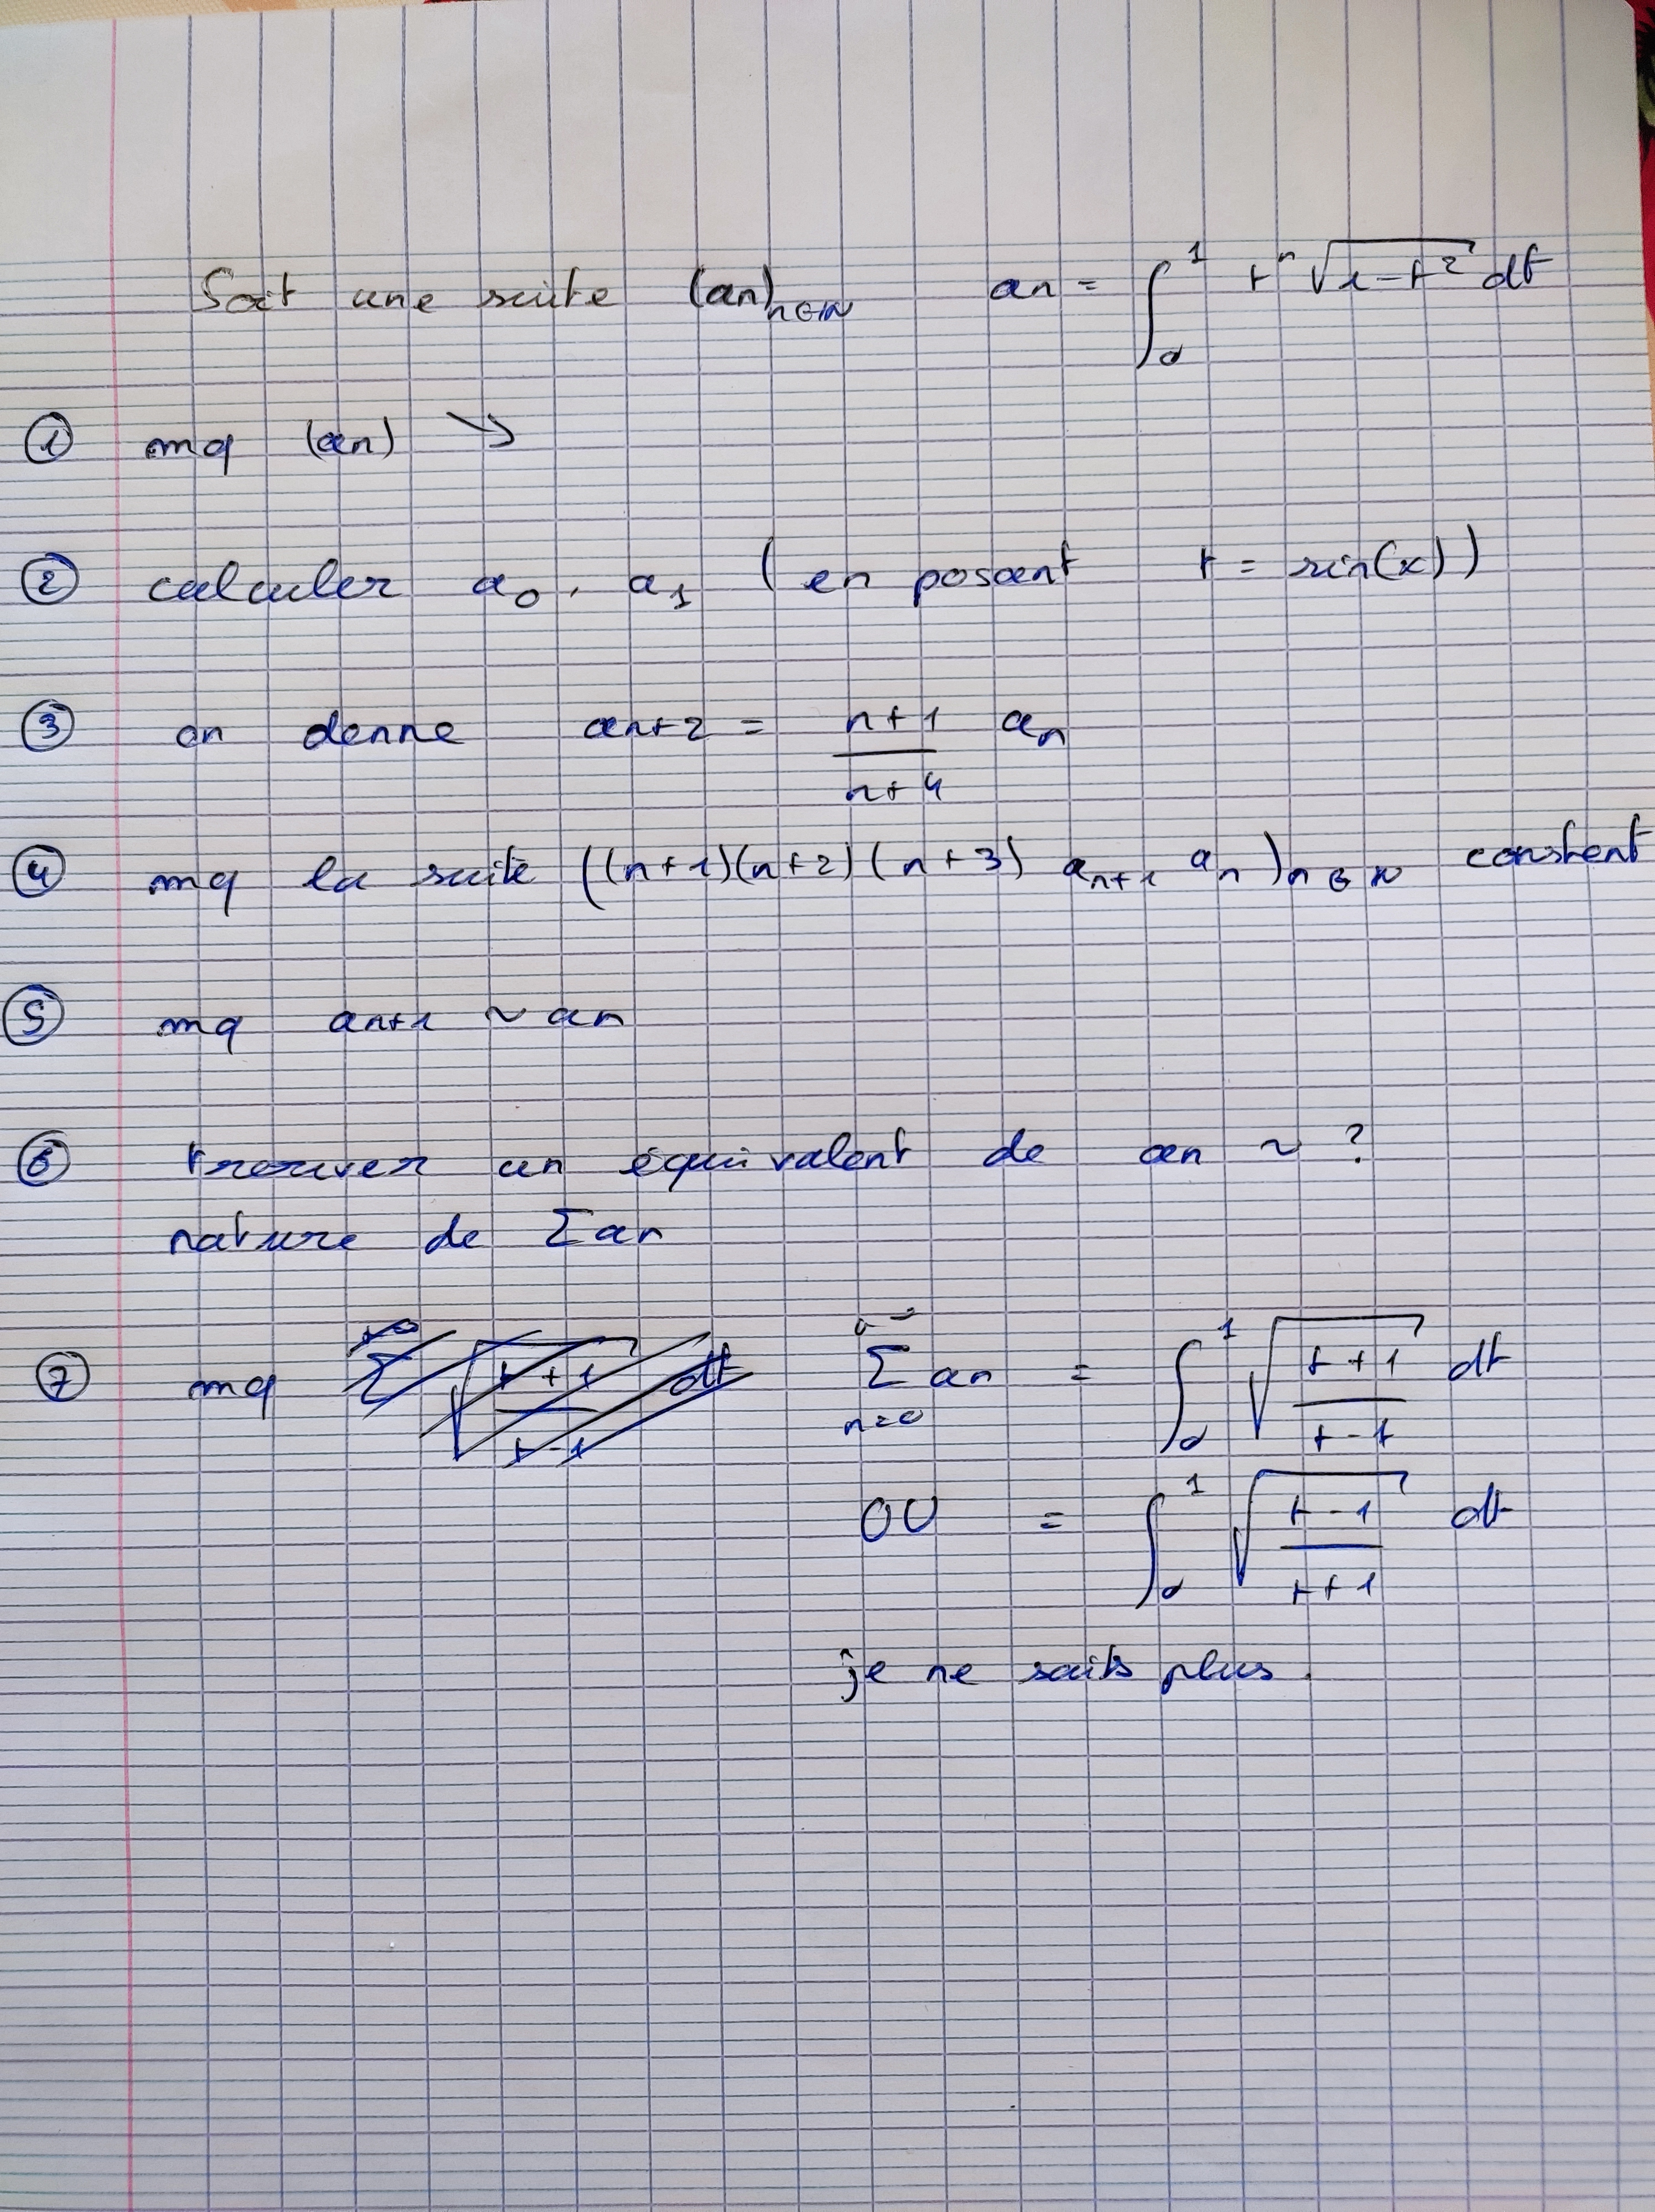 Soit une suite (an)n∈ℕ an = ∫₀¹ tⁿ √(1-t²) dt
① mq (an) ↘
② calculer a₀, a₁ (en posant t = sin(x))
③ on donne an+2 = (n+1)/(n+4) an
④ mq la suite ((n+1)(n+2)(n+3) an+1 an)n∈ℕ constent
⑤ mq an+1 ~ an
⑥ trouver un équivalent de an ~ ?
nature de Σan
⑦ mq Σ an n=0 = ∫₀¹ √((t+1)/(t-t)) dt
OU = ∫₀¹ √((t-1)/(t+1)) dt
je ne saits plus.